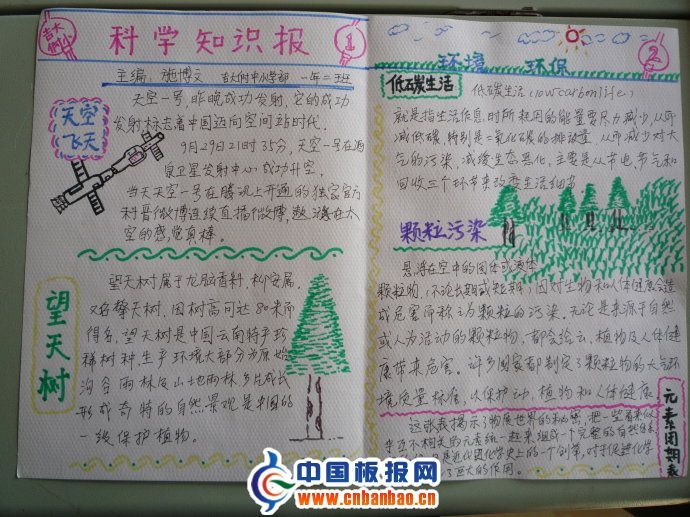 科学知识报
1
主编：施博文 一年二班
天空
飞天
天空一号，昨晚成功发射，它的成功
发射标志着中国迈向空间站时代。
9月29日21时35分，天空一号在酒
泉卫星发射中心成功升空。
当天天空一号在腾讯上开通的独家官方
科普微博连续直播微博，遨游在太
空的感觉真棒。
望天树
望天树属于龙脑香科，柳安属，
又名擎天树，因树高可达80米而
得名。望天树是中国云南特产珍
稀树种，生产环境大部分为原始
沟谷雨林及山地雨林，多片成长
形成奇特的自然景观，是中国的
一级保护植物。
2
环境 环保
低碳生活
低碳生活（lowcarbonlife）
就是指生活作息时所耗用的能量要尽力减少，从而
减低碳，特别是二氧化碳的排放量，从而减少对大
气的污染，减缓生态恶化，主要是从节电节气和
回收三个环节来改变生活细节
颗粒污染
悬浮在空中的固体或液体
颗粒物，不论长期或短期，因对生物和人体健康会造
成危害而称之为颗粒的污染。无论是来源于自然
或人为活动的颗粒物，都会给动植物及人体健
康带来危害。许多国家都制定了颗粒物的大气环
境质量标准，以保护动植物和人体健康。
元素周期表
这张表揭示了物质世界的秘密，把一些看来似
乎互不相关的元素统一起来，组成一个完整的自然体系
近代化学史上的一个创举，对于促进化学
了巨大的作用。
中国板报网
www.cnbanbao.cn